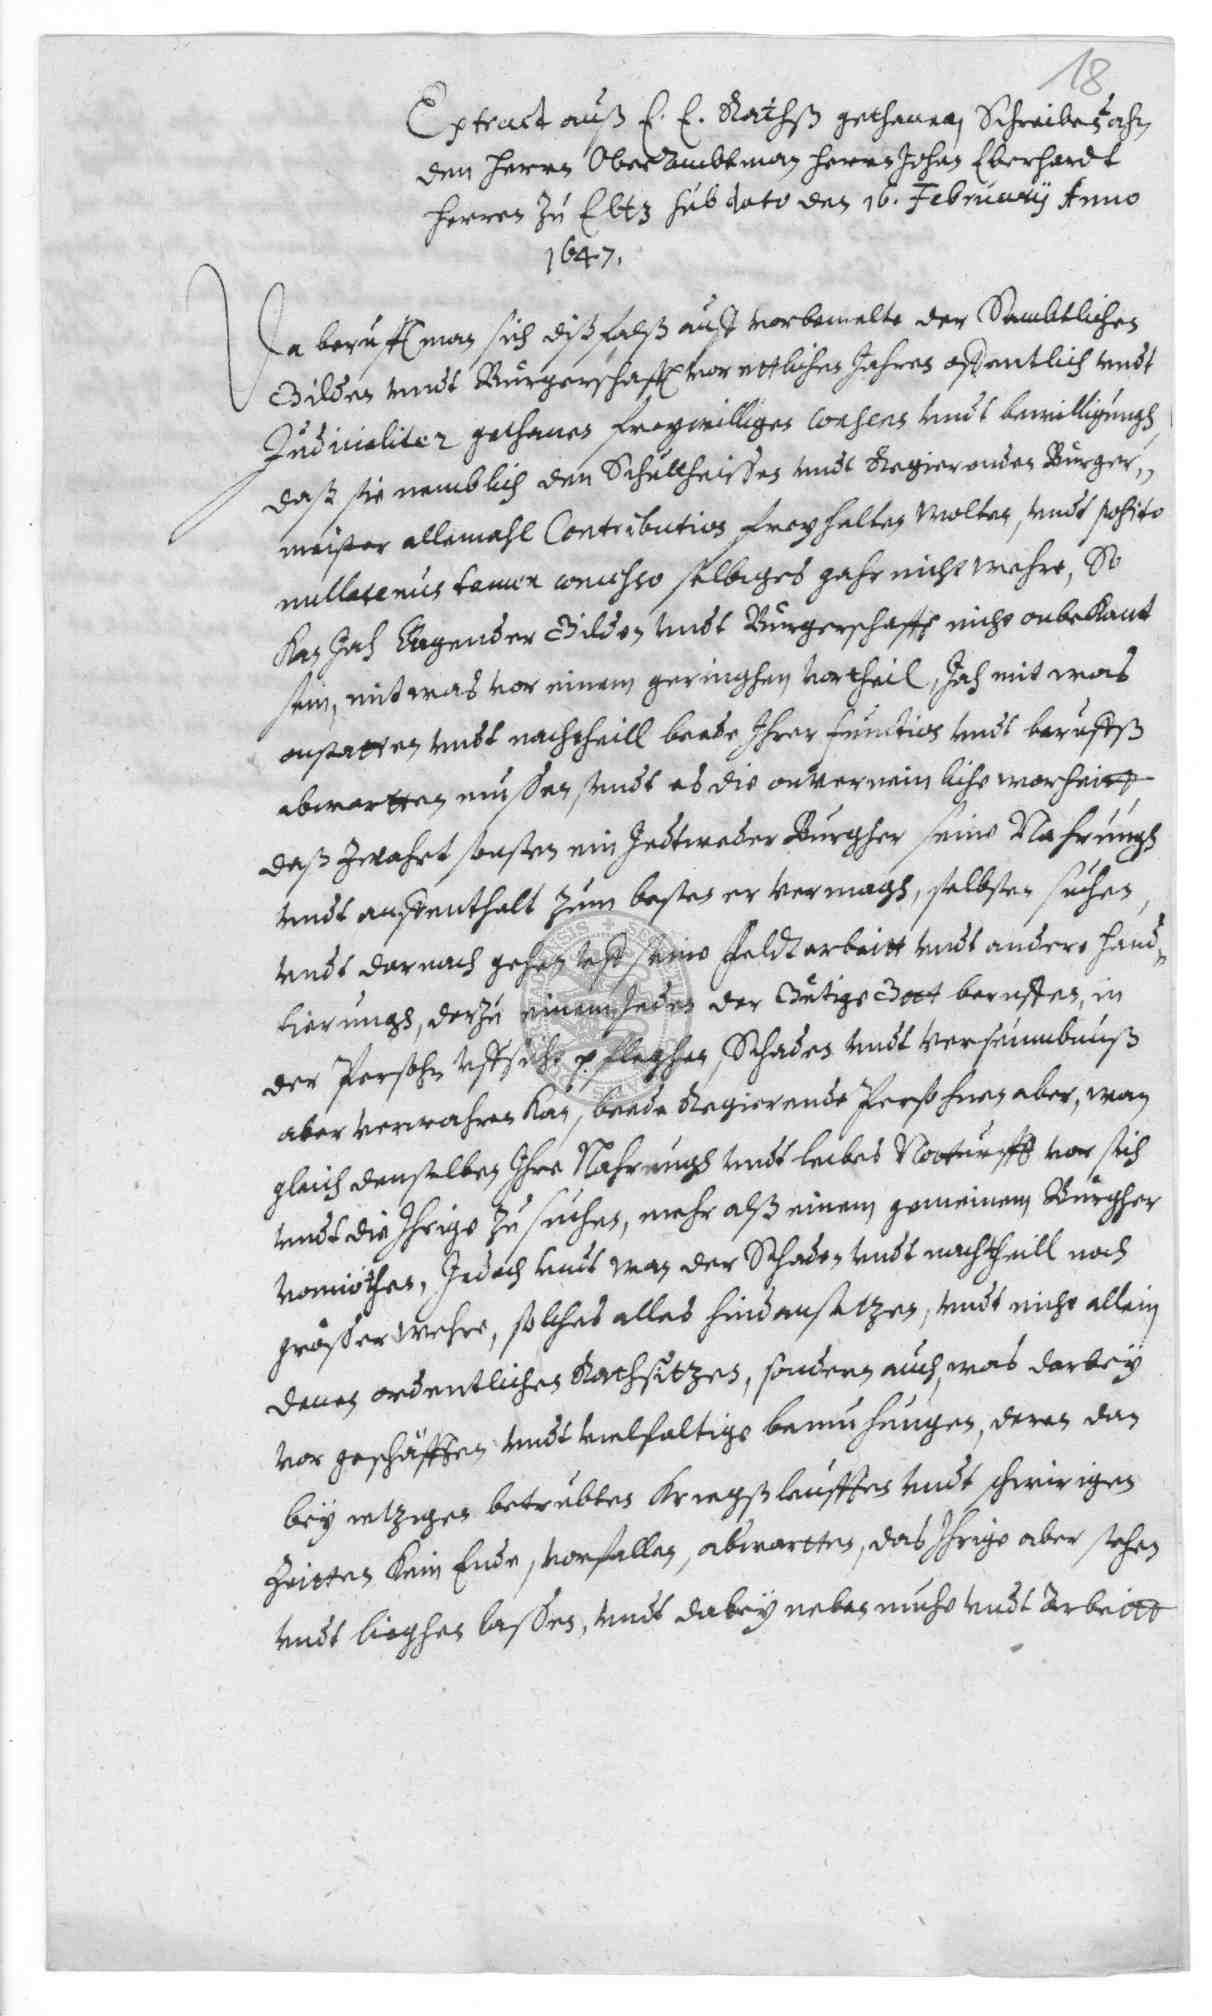 18
Extract auß E. E. Rathß gethanem Schreiben ahn
den Herrn OberAmbtman Herrn Johan Eberhardt
Herren zu Eltz sub dato den 16. Februarij Anno
1647.
Da berufft man sich dißfalß auff vorbemelte der Sambtlichen
Gilden vndt Bürgerschafft vor ettlichen Jahren offentlich vndt
Judicialiter gethanes freywilliges consens vndt bewilligungh
daß sie nemblich den Schultheissen vndt Regierenden Burger„
meister allemahl Contribution frey halten wolten, vndt posito
nullatenus tamen concesso selbiges gahr nicht wehre, So
Kan Jah Eegender Gilden vndt Bürgerschafft nicht onbekant
sein, mit was vor einem geringhen Vortheil, Jah mit was
onstatten vndt nachtheill beede Ihrer function vndt beruffß
abwartten mussen, vndt es die onverneinliche warheitt
daß zwahrt sonsten ein Jedtweder Burgher seine Nahrungh
vndt auffenthalt zum besten er vermagh, selbsten suchen,
vndt darnach gehen vff seine Feldtarbeitt vndt andere hand„
tierungh, darzu einem Jeden der Gütige Gott beruffen, in
der Persohn vffsicht pfleghen, Schaden vndt Verseumbnuß
aber verwahren Kan, beede Regierende Persohnen aber, wan
gleich denselben Ihre Nahrungh vndt leibes Notturfft vor sich
vndt die Ihrige zu suchen, mehr alß einem gemeinem Bürgher
vonnöthen, Jedoch vndt wan der Schaden vndt nachtheill noch
grösser wehre, solches alles hindansetzen, vndt nicht allein
denen ordentlichen Rathsitzen, sondern auch, was darbeÿ
vor geschäfften vndt vielfaltige bemuhungen, deren dan
beÿ ietzigen betrubten Kriegßleufften vndt schwirigen
Zeitten Kein Ende, vorfallen, abwartten, das Ihrige aber stehen
vndt lieghen lassen, vndt dabeÿ neben muhe vndt Arbeitt